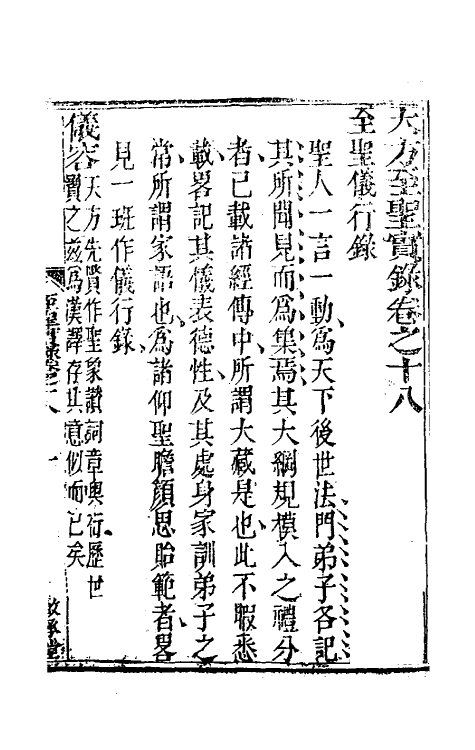 天方至聖實錄卷之十八
至聖儀行錄
聖人一言一動為天下後世法門弟子各記
其所聞見而為集焉其大綱規模入之禮分
者已載諸經傳中所謂大藏是也此不暇悉
載畧記其儀表德性及其處身家訓弟子之
常所謂家語也為諸仰聖瞻顏思貽範者畧
見一班作儀行錄
儀容
天方先賢作聖象讚詞章輿衍歷世
寶之茲為漢譯存其意似而已矣